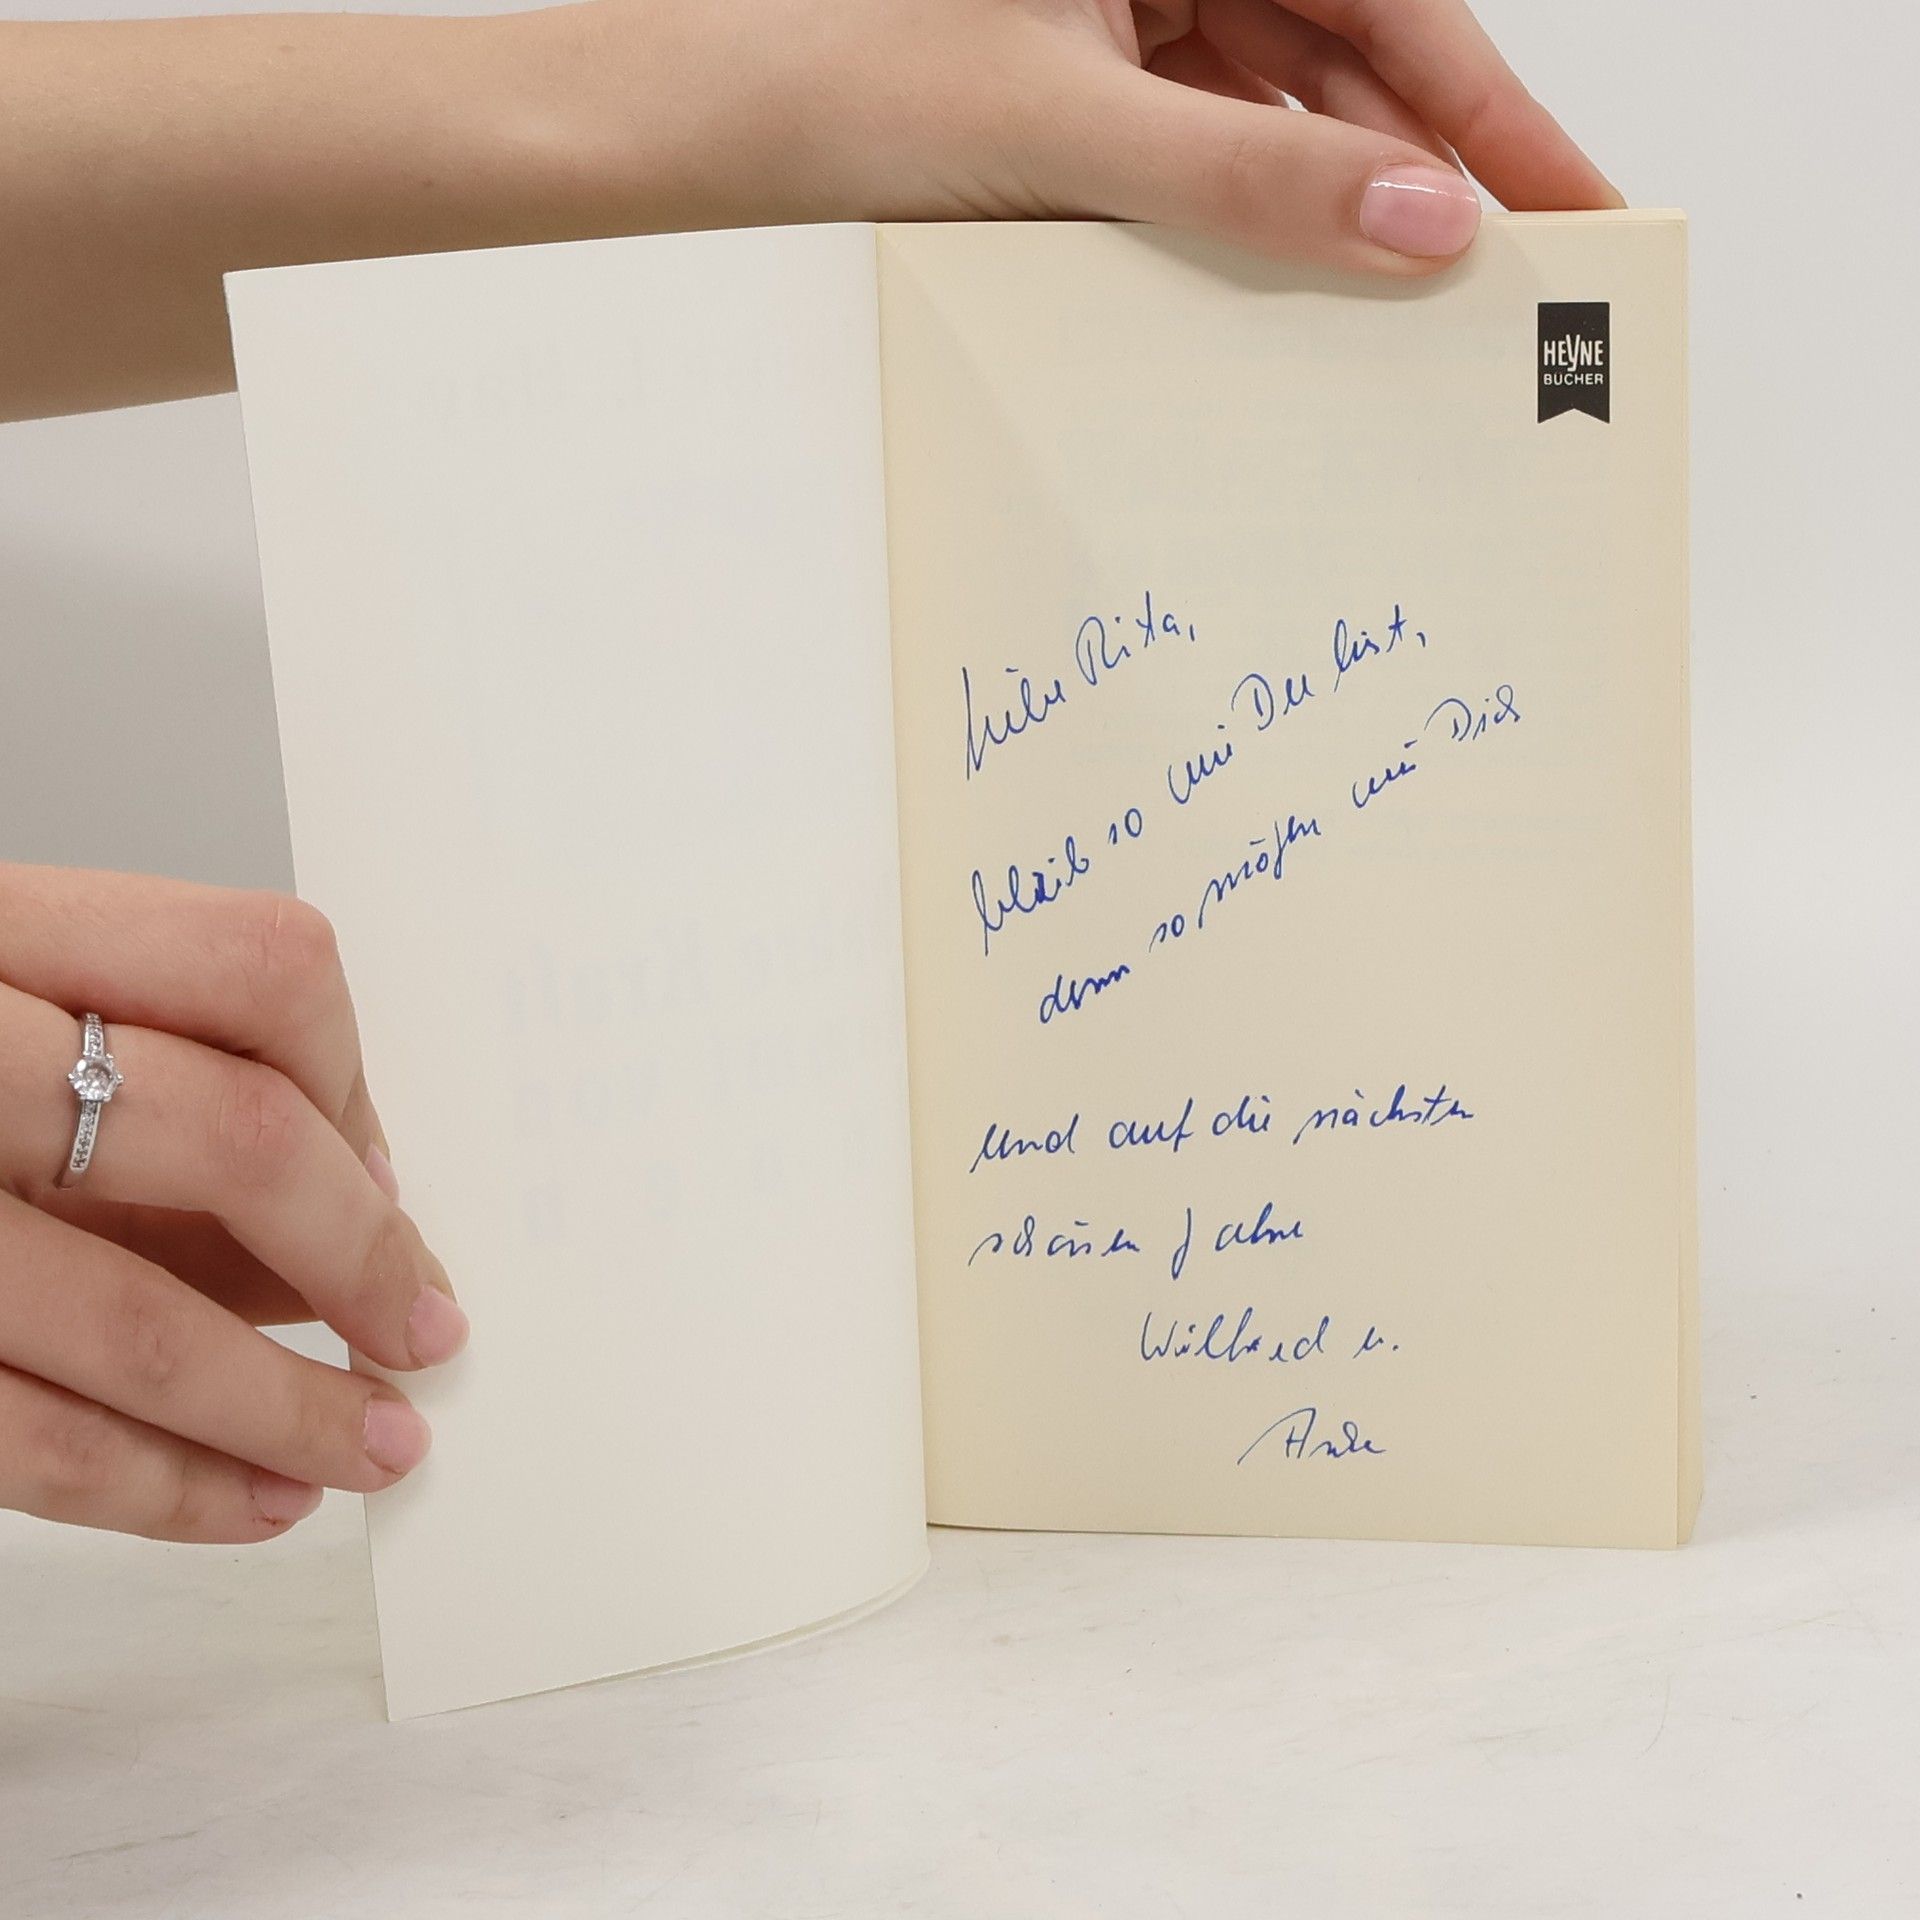 HEYNE
BÜCHER
Liebe Rita,
bleib so wie Du bist,
denn so mögen wir Dich
Und auf die nächsten
schönen Jahre
Wilfried u.
Anke